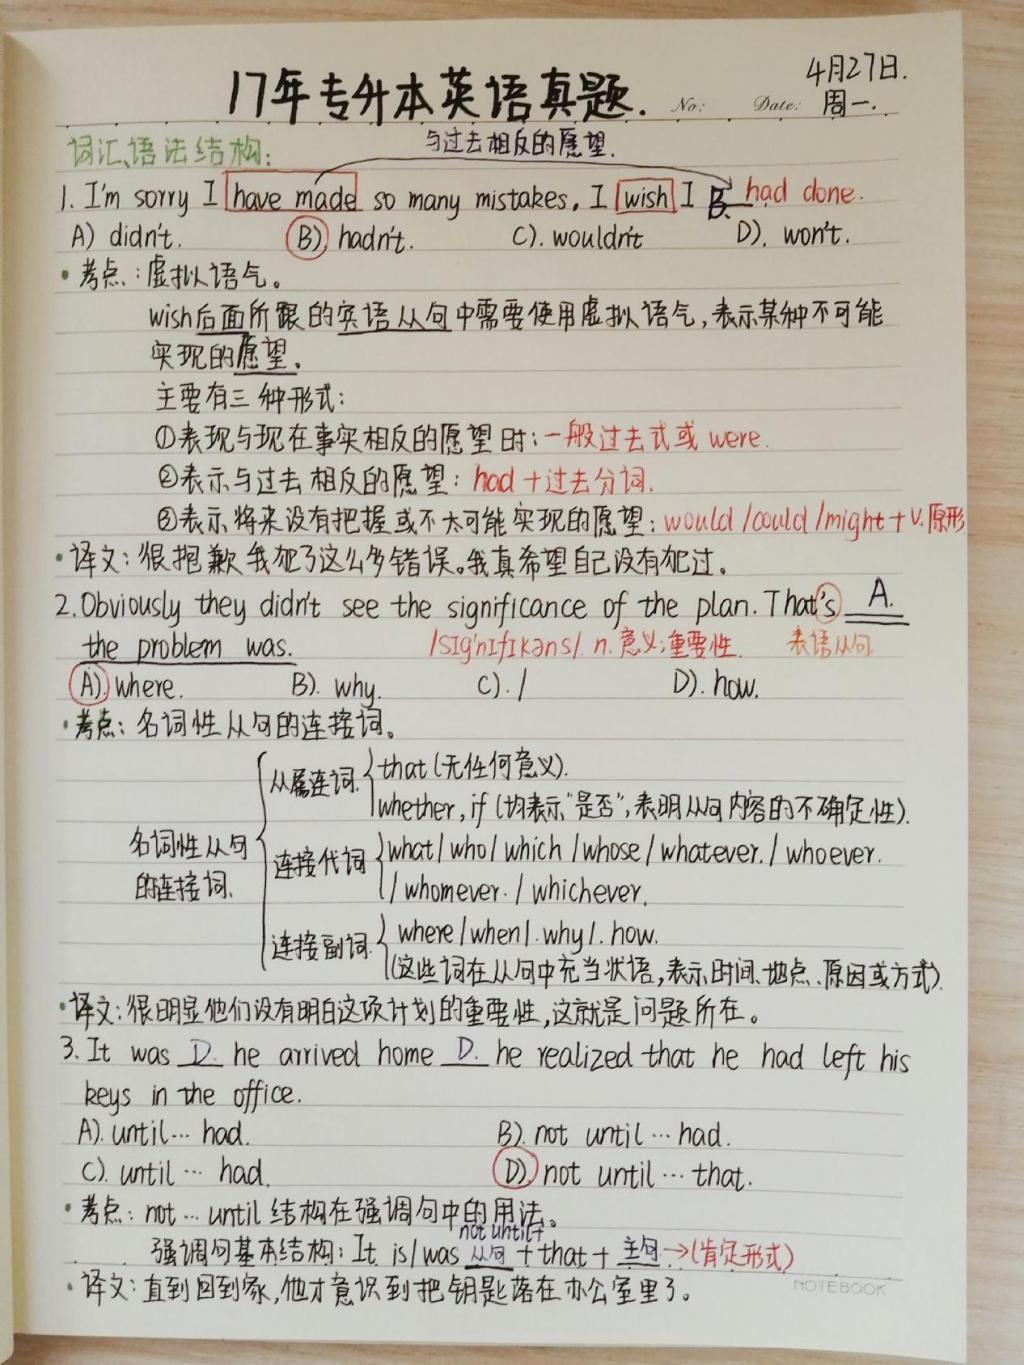 17年专升本英语真题.
4月27日.
No: Date: 周一.
词汇、语法结构:
与过去相反的愿望.
1. I'm sorry I have made so many mistakes. I wish I B. had done.
A) didn't. B). hadn't. C). wouldn't D). won't.
·考点:虚拟语气。
wish后面所跟的宾语从句中需要使用虚拟语气,表示某种不可能
实现的愿望.
主要有三种形式:
①表现与现在事实相反的愿望时:一般过去式或 were.
②表示与过去相反的愿望: had +过去分词.
③表示将来没有把握或不太可能实现的愿望: would /could /might + v.原形
·译文:很抱歉我犯了这么多错误。我真希望自己没有犯过。
2. Obviously they didn't see the significance of the plan. That's A.
the problem was. /sɪg'nɪfɪkəns/. n. 意义;重要性. 表语从句.
A). where. B). why. C). / D). how.
·考点:名词性从句的连接词。
从属连词. that (无任何意义).
whether, if (均表示"是否",表明从句内容的不确定性).
名词性从句
的连接词.
连接代词 what / who / which / whose / whatever. / whoever.
/ whomever. / whichever.
连接副词. where / when /. why /. how.
(这些词在从句中充当状语,表示时间、地点、原因或方式).
·译文:很明显他们没有明白这项计划的重要性,这就是问题所在。
3. It was D. he arrived home D. he realized that he had left his
keys in the office.
A). until… had. B). not until … had.
C). until … had. D). not until … that.
·考点: not … until 结构在强调句中的用法。
not until+
强调句基本结构: It is/was 从句 + that + 主句→(肯定形式)
·译文:直到回到家,他才意识到把钥匙落在办公室里了。
NOTEBOOK